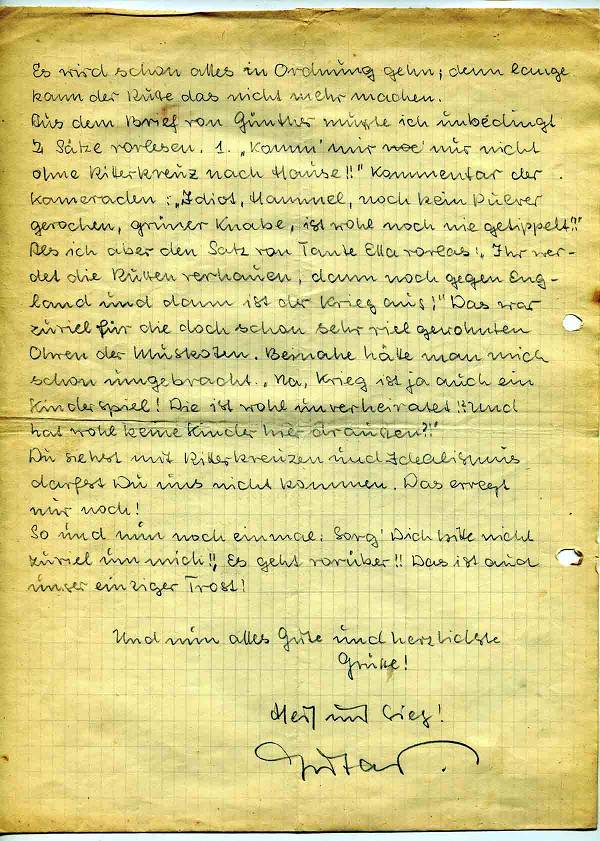 Es wird schon alles in Ordnung gehn; denn lange
kann der Russe das nicht mehr machen.
Aus dem Brief von Günther mußte ich unbedingt
2 Sätze vorlesen. 1. „Komm' mir noc nur nicht
ohne Ritterkreuz nach Hause!!" Kommentar der
Kameraden: „Idiot, Hammel, noch kein Pulver
gerochen, grüner Knabe, ist wohl noch nie getippelt!!"
Als ich aber den Satz von Tante Ella vorlas: „Ihr wer-
det die Russen verhauen, dann noch gegen Eng-
land und dann ist der Krieg aus!" Das war
zuviel für die doch schon sehr viel gewohnten
Ohren der Muskoten. Beinahe hätte man mich
schon umgebracht. „Na, Krieg ist ja auch ein
Kinderspiel! Die ist wohl unverheiratet!! Und
hat wohl keine Kinder hier draußen?!"
Du siehst mit Ritterkreuzen und Idealismus
darfst Du uns nicht kommen. Das erregt
nur noch!
So und nun noch einmal: Sorg' Dich bitte nicht
zuviel um mich!! Es geht vorüber!! Das ist auch
unser einziger Trost!
Und nun alles Gute und herzlichste
Grüße!
Heil und Sieg!